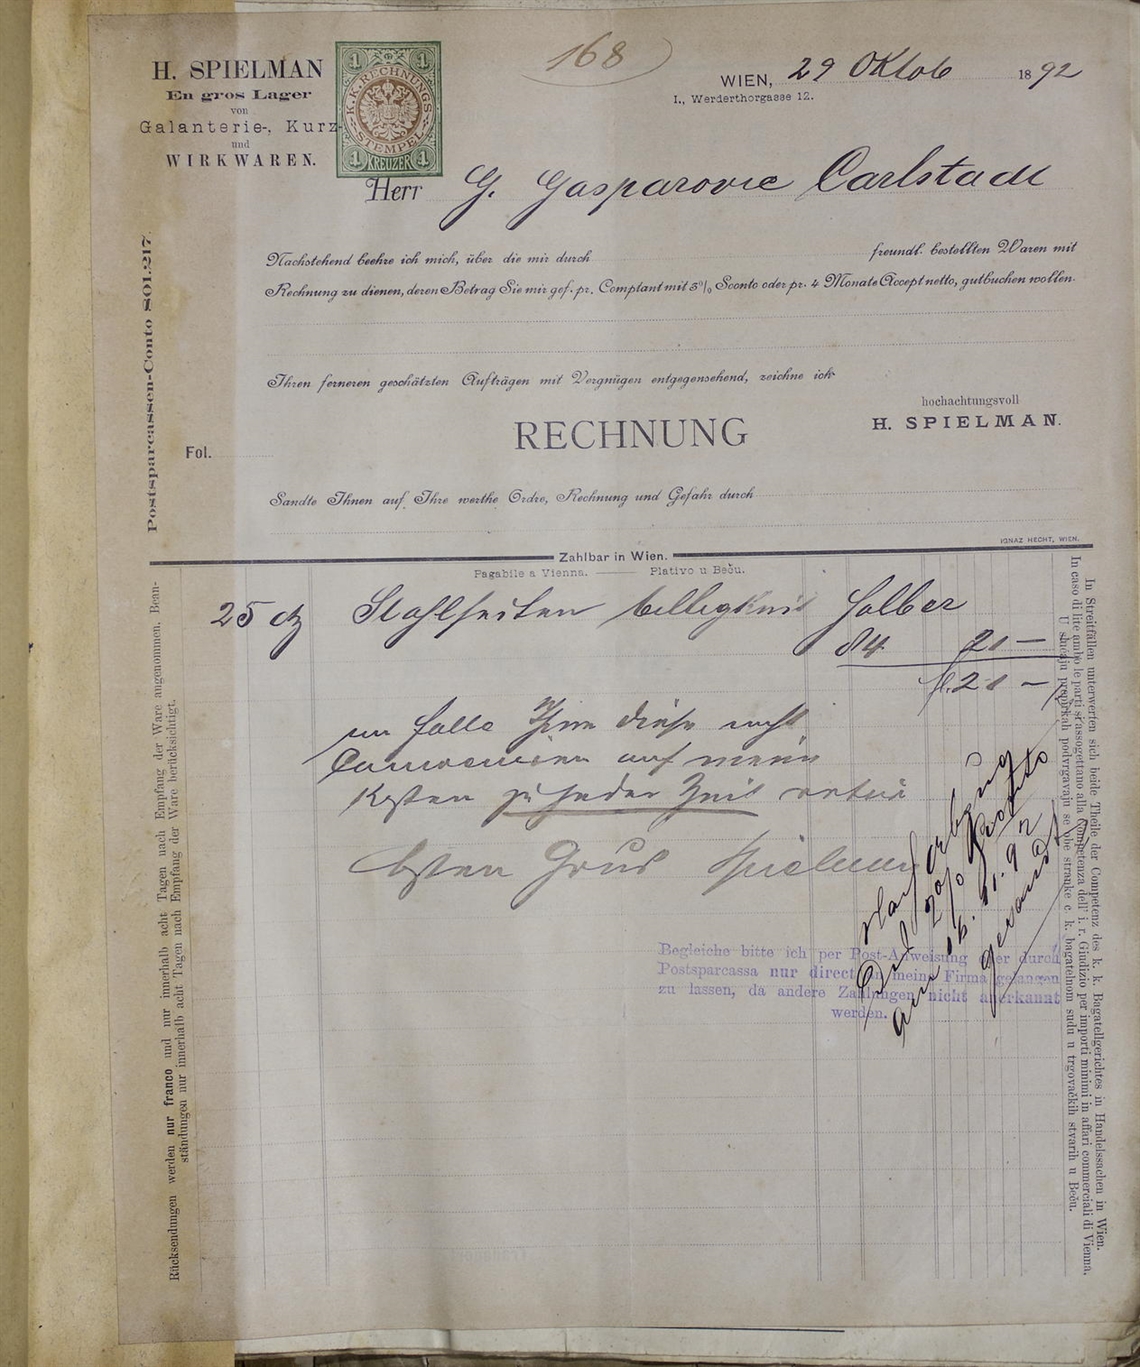 168
H. SPIELMAN
En gros Lager
von
Galanterie-, Kurz-
und
WIRKWAREN.
1 1
K.K. RECHNUNGS
STEMPEL
1 KREUZER 1
WIEN, 29 Oktob 1892
I., Werderthorgasse 12.
Herr G. Gasparovic Carlstadt
Nachstehend beehre ich mich, über die mir durch freundl. bestellten Waren mit
Rechnung zu dienen, deren Betrag Sie mir gef. pr. Comptant mit 3% Sconto oder pr. 4 Monate Accept netto, gutbuchen wollen.
Ihren ferneren geschätzten Aufträgen mit Vergnügen entgegensehend, zeichne ich
hochachtungsvoll
H. SPIELMAN.
Postsparcassen-Conto 801.217.
Fol.
RECHNUNG
Sandte Ihnen auf Ihre werthe Ordre, Rechnung und Gefahr durch
IGNAZ HECHT, WIEN.
Zahlbar in Wien.
Pagabile a Vienna. Plativo u Beču.
25 Stahlseiten
84 21 —
fl. 21 —
im falle Ihnen diese nicht
auf meine
Kosten zu jeder Zeit retour
besten Gruß Spielman
2%
gesandt
Begleiche bitte ich per Post-Anweisung oder durch
Postsparcassa nur direct an meine Firma gelangen
zu lassen, da andere Zahlungen nicht anerkannt
werden.
Rücksendungen werden nur franco und nur innerhalb acht Tagen nach Empfang der Ware angenommen. Bean-
ständungen nur innerhalb acht Tagen nach Empfang der Ware berücksichtigt.
In Streitfällen unterwerfen sich beide Theile der Competenz des k. k. Bagatellgerichtes in Handelssachen in Wien.
In caso di lite ambo le parti s'assogettano alla Competenza dell' i. r. Giudizio per importi minimi in affari commerciali di Vienna.
U slučaju preporkah podvrgavaju se obe stranke c. k. bagatelnom sudu u trgovačkih stvarih u Beču.